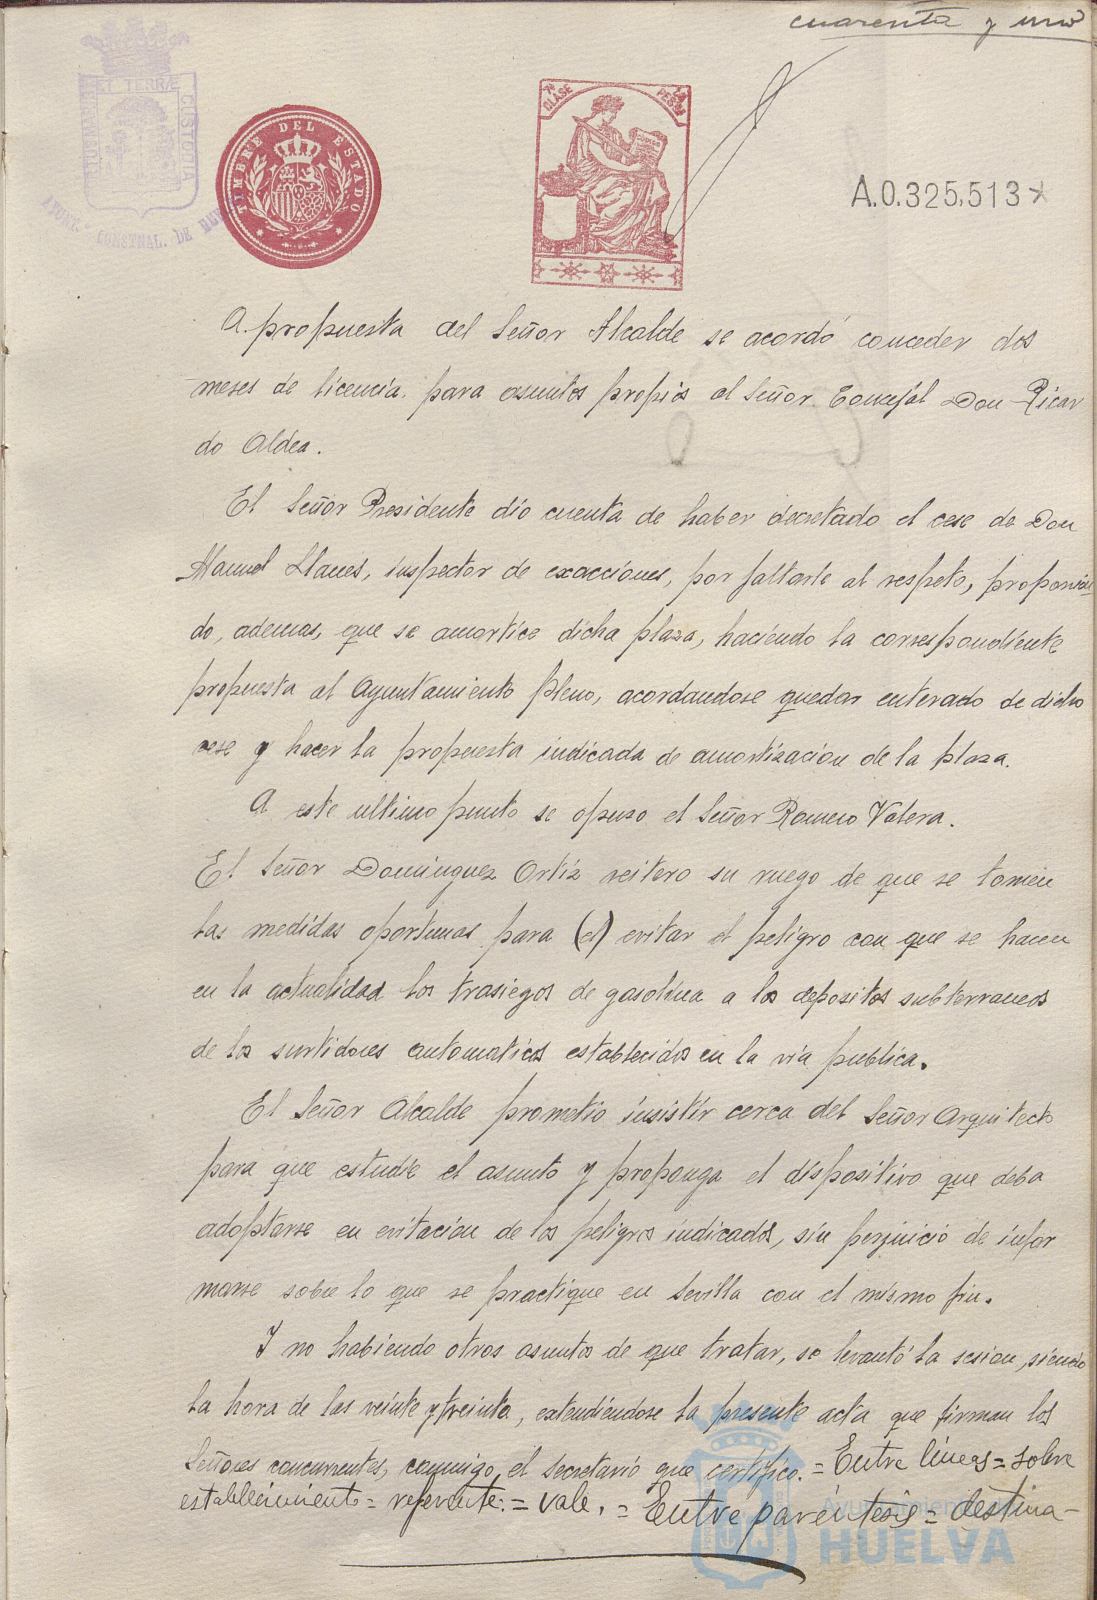 cuarenta y uno
PORTUS MARIS ET TERRÆ CUSTODIA
AYUNT.º CONSTNAL. DE HUELVA
TIMBRE DEL ESTADO
7ª CLASE
PESETA
A.0.325,513*
A propuesta del Señor Alcalde se acordó conceder dos
meses de licencia para asuntos propios al Señor Concejal Don Ricar
do Aldea.
El Señor Presidente dio cuenta de haber decretado el cese de Don
Manuel Llanes, inspector de exacciones, por faltarle al respeto, proponien
do, ademas, que se amortice dicha plaza, haciendo la correspondiente
propuesta al Ayuntamiento Pleno, acordandose quedar enterado de dicho
cese y hacer la propuesta indicada de amortizacion de la plaza.
A este ultimo punto se opuso el Señor Romero Valera.
El Señor Dominguez Ortiz reitero su ruego de que se tomen
las medidas oportunas para (el) evitar el peligro con que se hacen
en la actualidad los trasiegos de gasolina a los depositos subterraneos
de los surtidores automaticos establecidos en la via publica.
El Señor Alcalde prometio insistir cerca del Señor Arquitecto
para que estudie el asunto y proponga el dispositivo que deba
adoptarse en evitacion de los peligros indicados, sin perjuicio de infor
marse sobre lo que se practique en Sevilla con el mismo fin.
Y no habiendo otros asuntos de que tratar, se levantó la sesion, siendo
la hora de las veinte y treinta, extendiendose la presente acta que firman los
Señores concurrentes, conmigo, el secretario que certifico. = Entre lineas = sobre
establecimiento = referente: = vale. = Entre paréntesis = destina-
Ayuntamiento
HUELVA